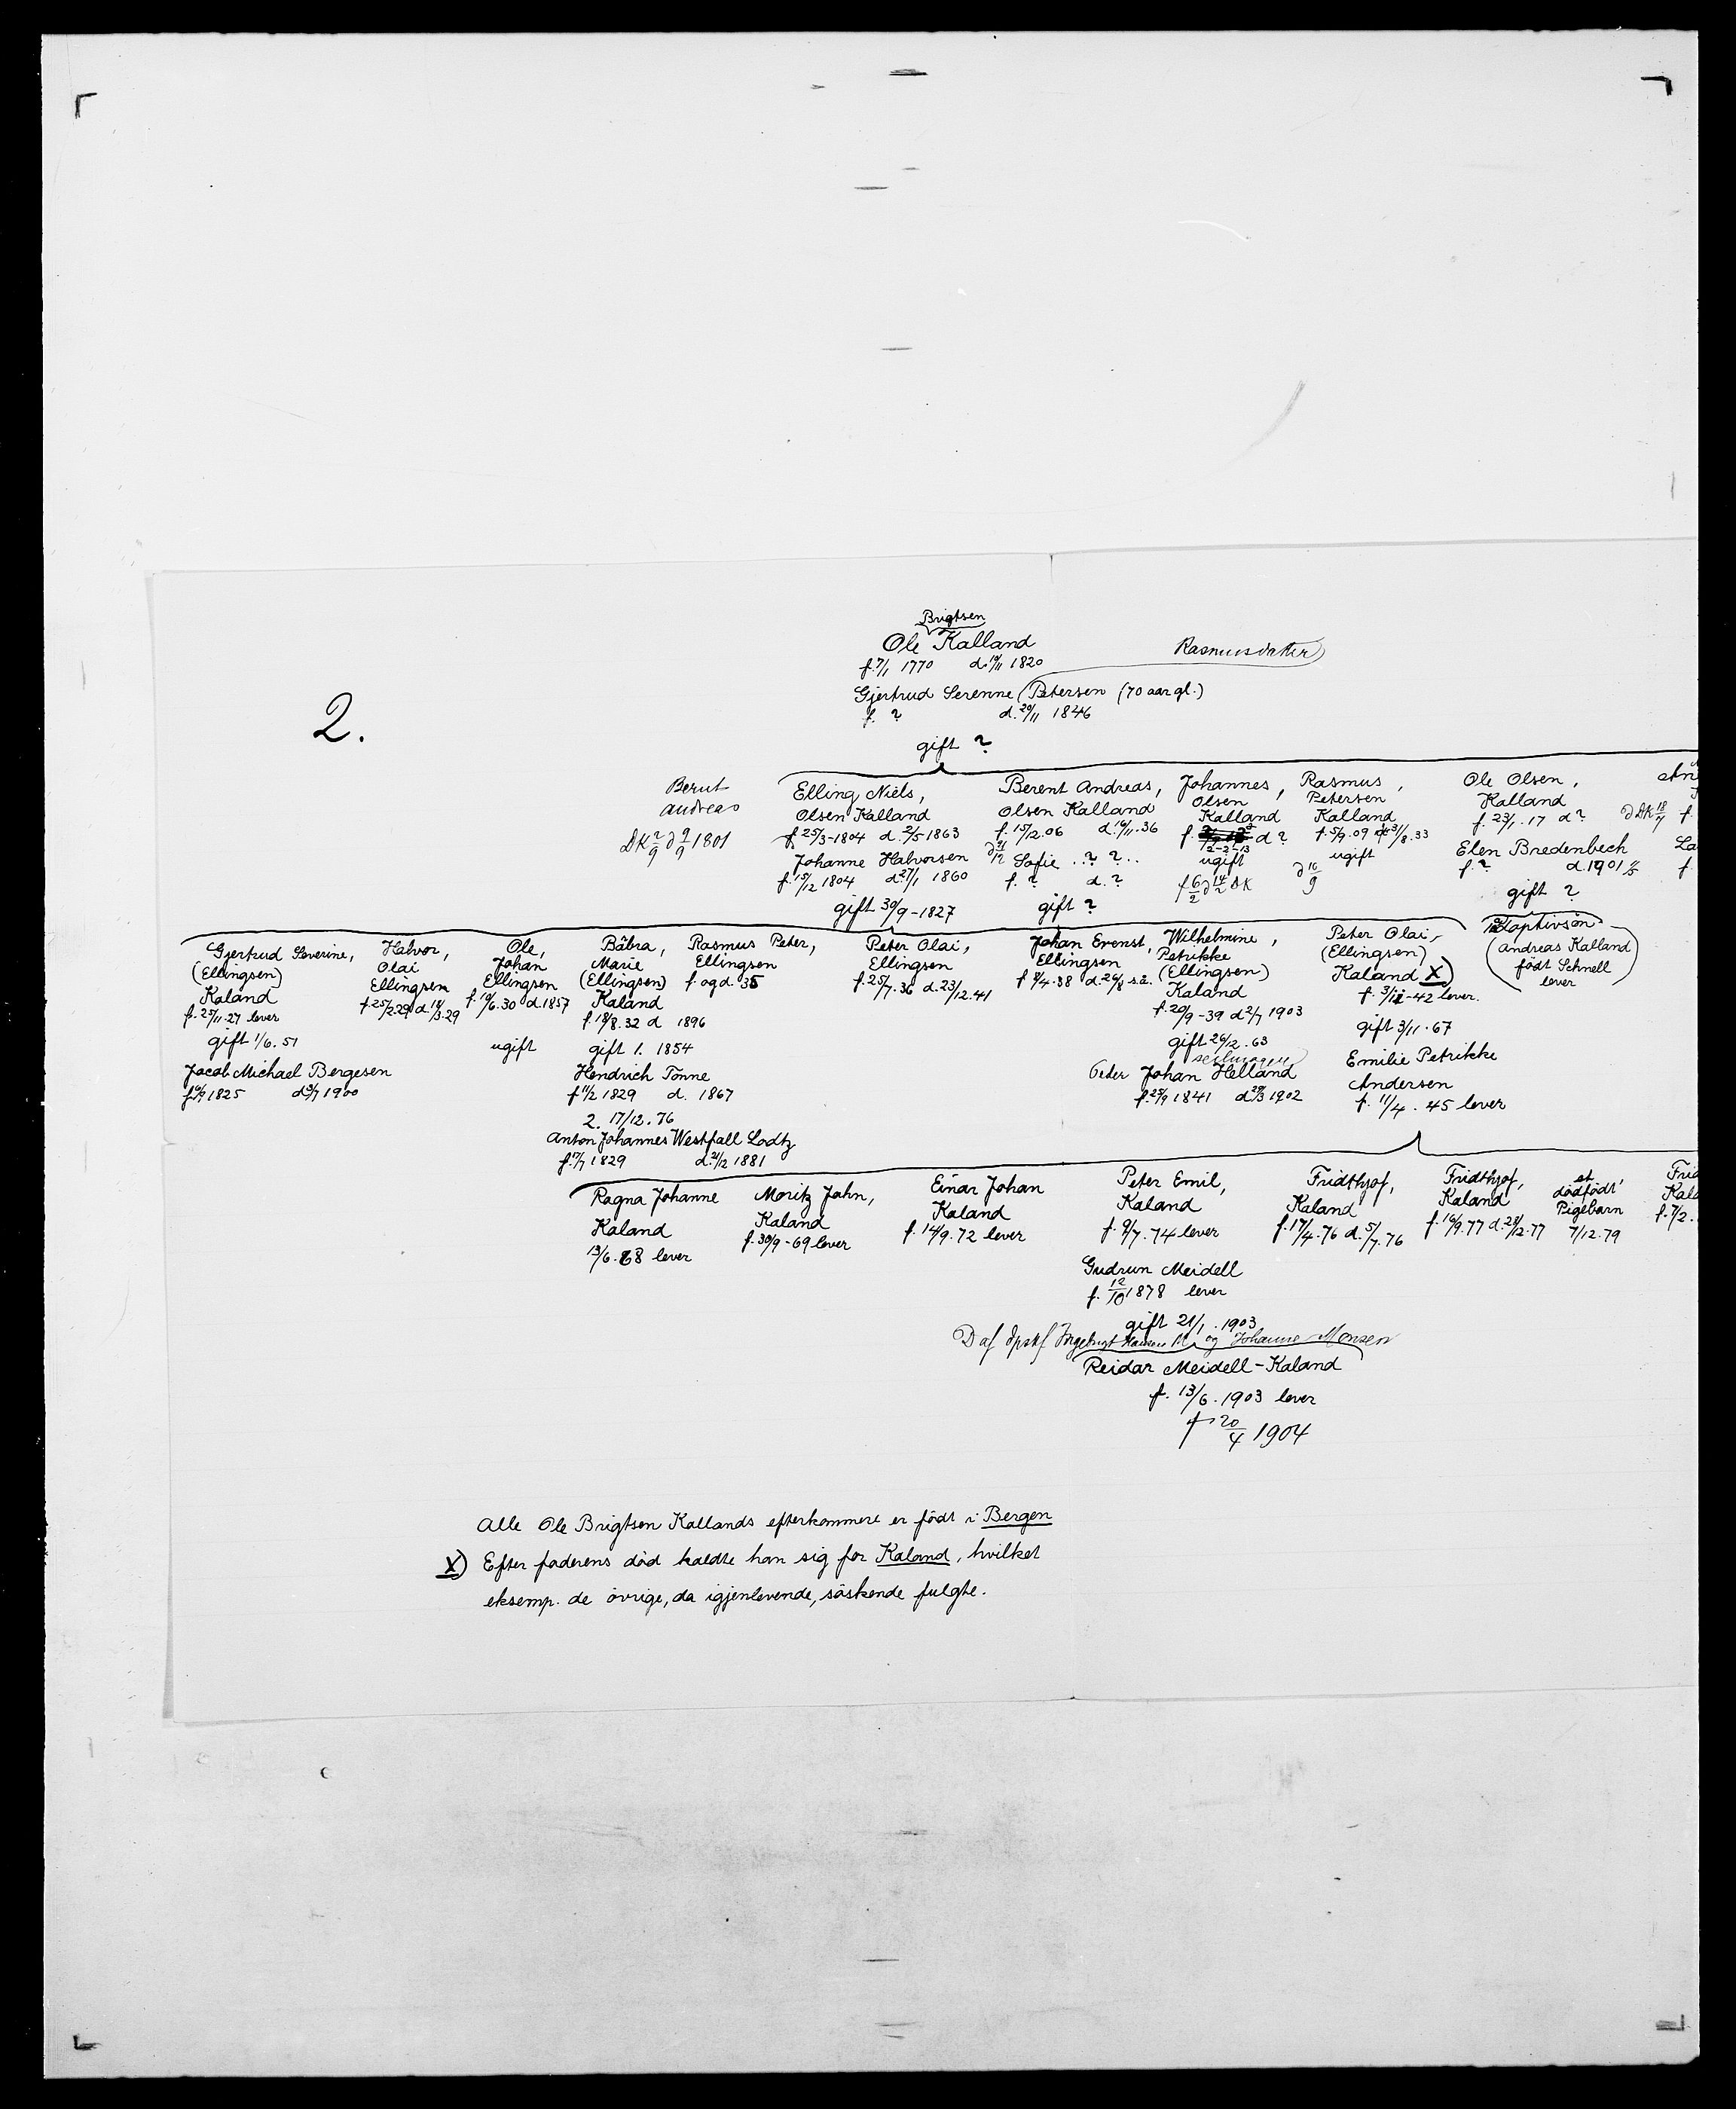 2.
Brigtsen
Ole Kalland
f. 7/1 1770 d. 19/11 1820
Rasmusdatter
Gjertrud Serenne (Petersen (70 aar gl.)
f. ? d. 20/11 1846
gift ?
Bernt
Andreas
DK 2/9 d 9/9 1801
Elling Niels,
Olsen Kalland
f. 25/3-1804 d. 2/5 1863
Johanne Halvorsen
f. 15/12 1804 d. 27/1 1860
gift 30/9-1827
Berent Andreas,
Olsen Kalland
f. 15/2.06 d. 16/11.36
Sofie ..? ?..
f. ? d. ?
gift ?
Johannes,
Olsen
Kalland
f. d ?
2-2-13
ugift
f 6/2 d 14/2 DK
Rasmus,
Petersen
Kalland
f. 5/9.09 31/8.33
ugift
d 10/9
Ole Olsen,
Kalland
f. 23/1.17 d ?
Elen Bredenbech
f. ? d. 1901
gift ?
d DK 18/7 f.
La
f.
Gjertrud Severine,
(Ellingsen)
Kaland
f. 25/11-27 lever
gift 1/6.51
Jacob Michael Bergesen
1825 1900
Halvor,
Olai
Ellingsen
f. 25/2.29 d. 18/3.29
Ole,
Johan
Ellingsen
f. 19/6.30 d. 1857
ugift
Bâbra,
Marie
(Ellingsen)
Kaland
f. 18/8.32 d 1896
gift 1. 1854
Hendrich Tönne
f 11/2 1829 d. 1867
2. 17/12.76
Anton Johannes Westfall Lodtz
f. 17/7 1829 d. 21/12 1881
Rasmus Peter,
Ellingsen
f. og d. 35
Peter Olai,
Ellingsen
f. 25/7.36 d. 23/12.41
Johan Evenst,
Ellingsen
f 8/4.38 d. 26/8 s.a.
Wilhelmine,
Petrikke
(Ellingsen)
Kaland
f. 20/9-39 d 2/7 1903
gift 26/2.63
Peder Johan Helland
f. 25/9 1841 d. 29/3 1902
Peter Olai,
(Ellingsen)
Kaland X)
f. 3/12-42 lever.
gift 3/11.67
Emilie Petrikke
Andersen
f. 11/4.45 lever
Adaptivsön
(Andreas Kalland
födt Schnell
lever)
Ragna Johanne
Kaland
13/6.68 lever
Moritz Jahn,
Kaland
f. 30/9-69 lever
Einar Johan
Kaland
f. 14/9.72 lever
Peter Emil,
Kaland
f. 9/7.74 lever
Gudrun Meidell
f. 12/10 1878 lever
gift 21/1.1903
D af Ingebrigt Hansen M. og Johanne Monsen
Reidar Meidell-Kaland
f. 13/6.1903 lever
† 20/4 1904
Fridthjof,
Kaland
f. 17/4.76 d. 5/7.76
Fridthjof,
Kaland
f. 16/9.77 d. 28/12.77
et
dödfödt
Pigebarn
7/12.79
Frid
Kala
f. 7/2.
Alle Ole Brigtsen Kallands efterkommere er födt i Bergen
X) Efter faderens död kaldte han sig for Kaland, hvilket
eksemp. de övrige, da igjenlevende, söskende fulgte.